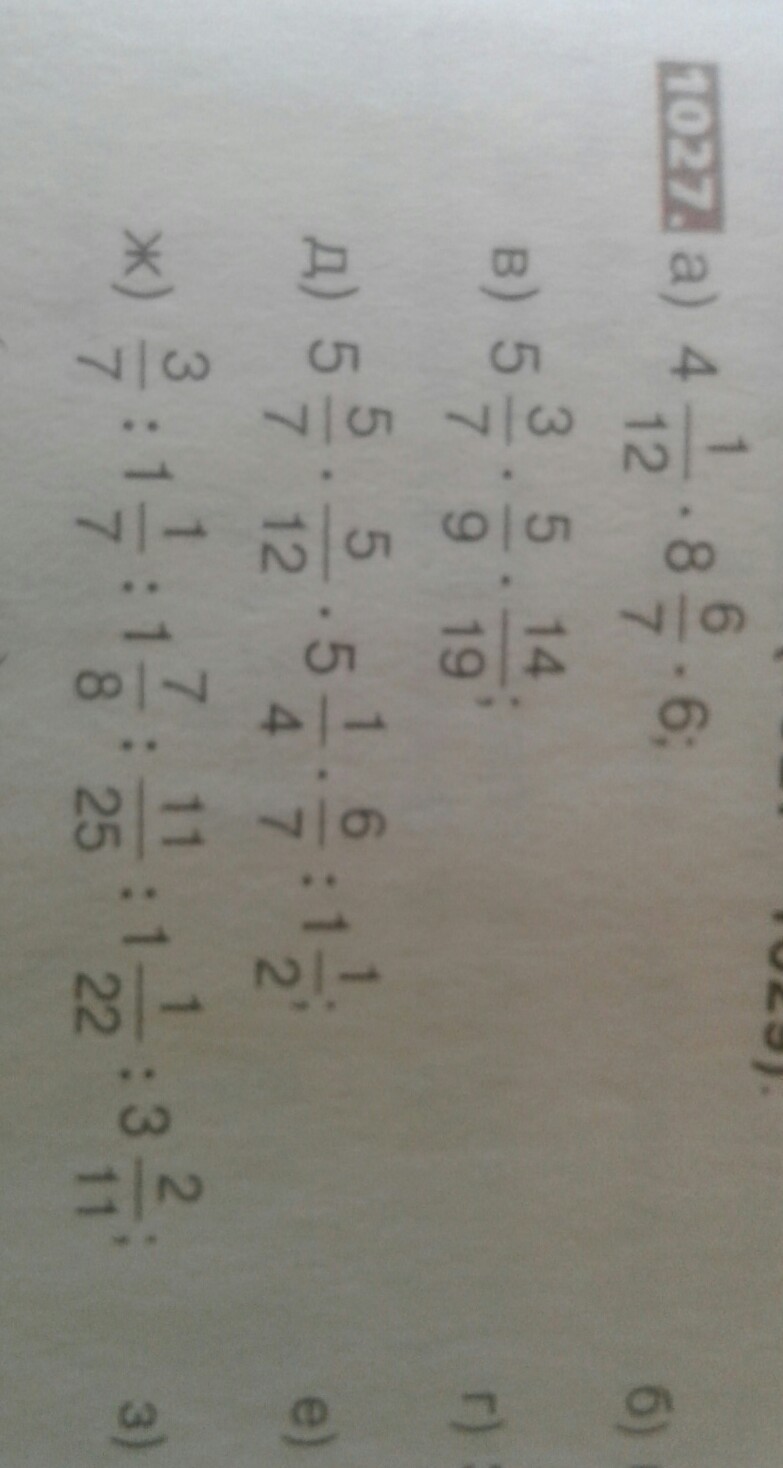 1029).
1027. а) 4 1/12 · 8 6/7 · 6; б)
в) 5 3/7 · 5/9 · 14/19; г)
д) 5 5/7 · 5/12 · 5 1/4 · 6/7 : 1 1/2; е)
ж) 3/7 : 1 1/7 : 1 7/8 : 11/25 : 1 1/22 : 3 2/11; з)